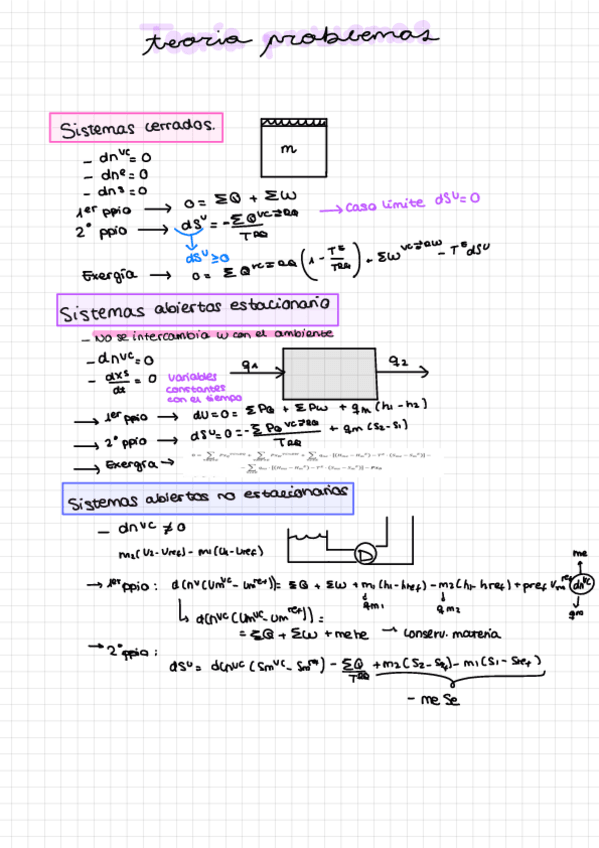 teoria problemas
Sistemas cerrados.
m
- dn^vc = 0
- dn^e = 0
- dn^s = 0
1er ppio → 0 = ΣQ + ΣW
2º ppio → dS^U = - ΣQ^VC⇄RQ / T^RQ → Caso límite dS^U = 0
dS^U ≥ 0
Exergía → 0 = ΣQ^VC⇄RQ (1 - T^E / T^RQ) + ΣW^VC⇄RW - T^E dS^U
Sistemas abiertos estacionario
- No se intercambia W con el ambiente
- dn^vc = 0
- dx^s / dt = 0 variables constantes con el tiempo
q1
q2
→ 1er ppio → dU = 0 = ΣPQ + ΣPW + qm (h1 - h2)
→ 2º ppio → dS^U = 0 = - ΣPQ^VC⇄RQ / T^RQ + qm (S2 - S1)
→ Exergía →
Sistemas abiertos no estacionarios
- dn^vc ≠ 0
m2(U2 - Uref) - m1(U1 - Uref)
D
me
→ 1er ppio : d(n^v(Um^vc - Um^ref)) = ΣQ + ΣW + m1(h1 - href) - m2(h2 - href) + pref Vm^ref dn^vc
qm1
qm2
qm
↳ d(n^vc(Um^vc - Um^ref)) =
= ΣQ + ΣW + mehe → Conserv. materia
→ 2º ppio :
dS^U = d(n^vc (Sm^vc - Sm^ref) - ΣQ / T^RQ + m2 (S2 - Sref) - m1 (S1 - Sref)
- me Se